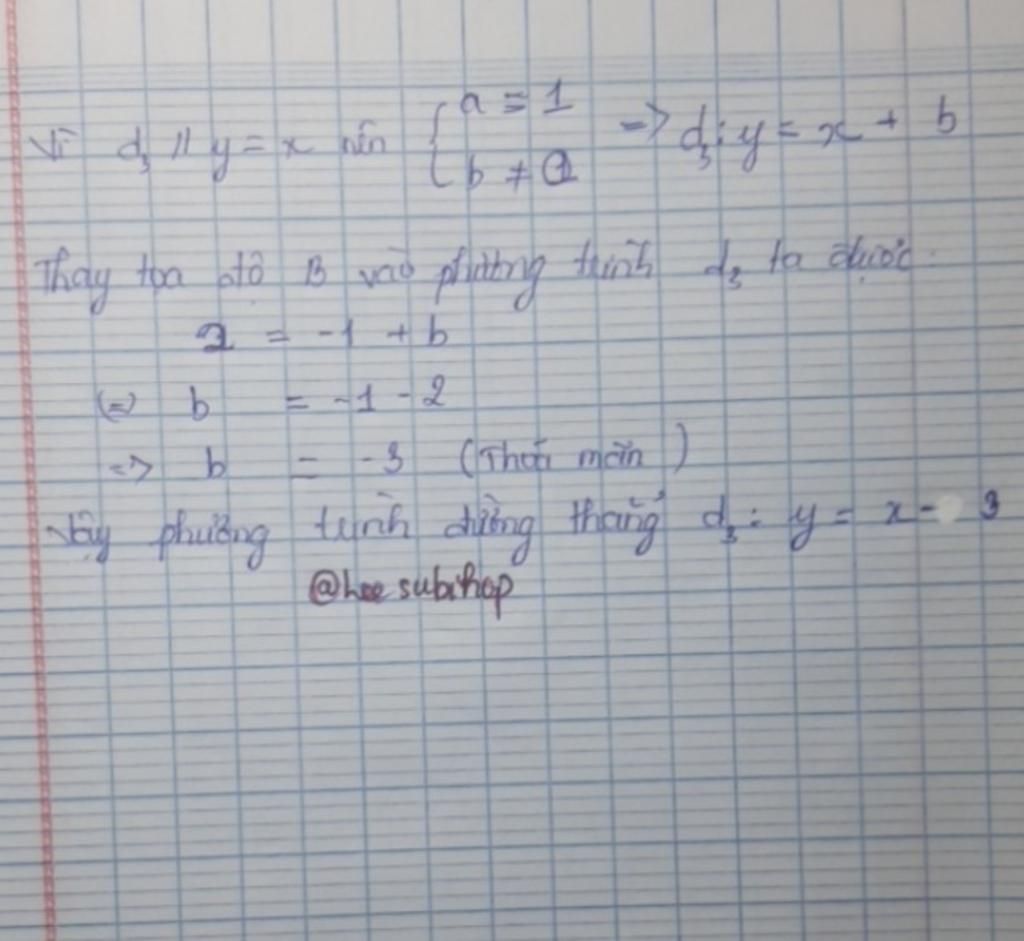 Vì d₃ // y = x nên { a = 1 => d₃: y = x + b
b ≠ 0
Thay tọa độ B vào phương trình d₃ ta được
2 = -1 + b
(=) b = -1 - 2
=> b = -3 (Thoả mãn)
Vậy phương trình đường thẳng d₃ : y = x - 3